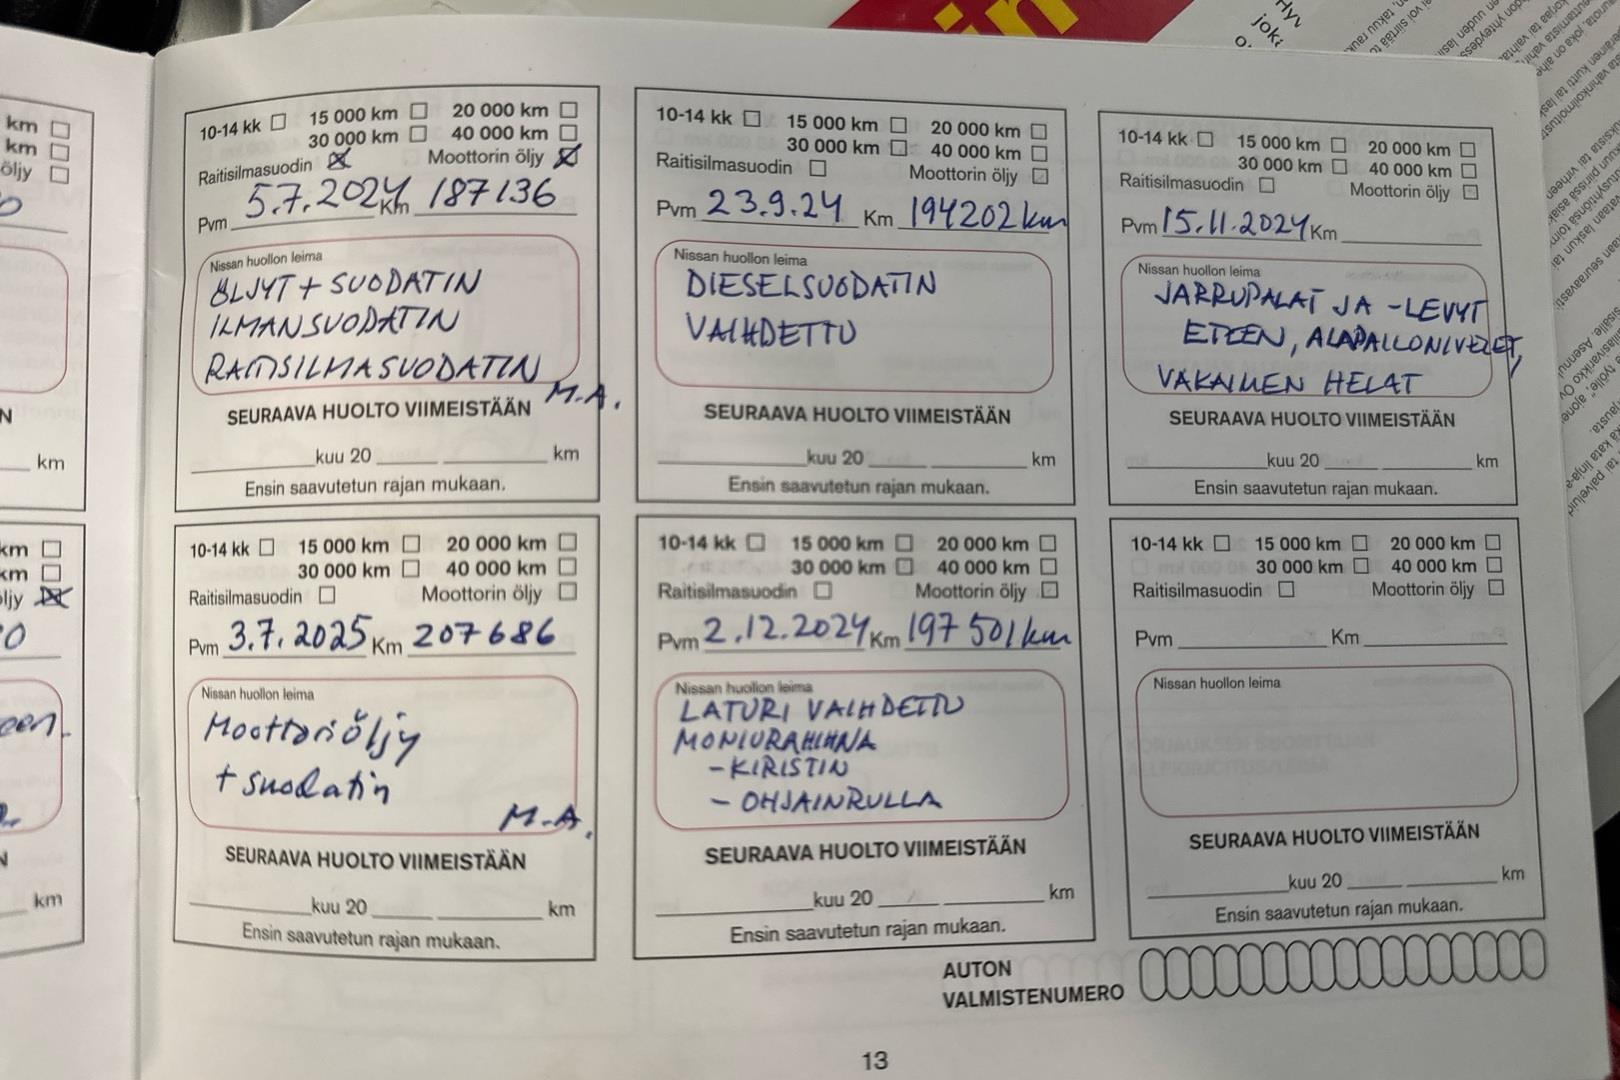 10-14 kk 15 000 km 20 000 km
30 000 km 40 000 km
Raitisilmasuodin Moottorin öljy
Pvm 5.7.2024 Km 187136
Nissan huollon leima
ÖLJYT + SUODATIN
ILMANSUODATIN
RAITISILMASUODATIN
M.A.
SEURAAVA HUOLTO VIIMEISTÄÄN
kuu 20 km
Ensin saavutetun rajan mukaan.
10-14 kk 15 000 km 20 000 km
30 000 km 40 000 km
Raitisilmasuodin Moottorin öljy
Pvm 23.9.24 Km 194202 km
Nissan huollon leima
DIESELSUODATIN
VAIHDETTU
SEURAAVA HUOLTO VIIMEISTÄÄN
kuu 20 km
Ensin saavutetun rajan mukaan.
10-14 kk 15 000 km 20 000 km
30 000 km 40 000 km
Raitisilmasuodin Moottorin öljy
Pvm 15.11.2024 Km
Nissan huollon leima
JARRUPALAT JA -LEVYT
ETEEN, ALAPALLONIVELET,
VAKAIMEN HELAT
SEURAAVA HUOLTO VIIMEISTÄÄN
kuu 20 km
Ensin saavutetun rajan mukaan.
10-14 kk 15 000 km 20 000 km
30 000 km 40 000 km
Raitisilmasuodin Moottorin öljy
Pvm 3.7.2025 Km 207686
Nissan huollon leima
Moottoriöljy
+ suodatin
M.A.
SEURAAVA HUOLTO VIIMEISTÄÄN
kuu 20 km
Ensin saavutetun rajan mukaan.
10-14 kk 15 000 km 20 000 km
30 000 km 40 000 km
Raitisilmasuodin Moottorin öljy
Pvm 2.12.2024 Km 197501 km
Nissan huollon leima
LATURI VAIHDETTU
MONIURAHIHNA
- KIRISTIN
- OHJAINRULLA
SEURAAVA HUOLTO VIIMEISTÄÄN
kuu 20 km
Ensin saavutetun rajan mukaan.
10-14 kk 15 000 km 20 000 km
30 000 km 40 000 km
Raitisilmasuodin Moottorin öljy
Pvm Km
Nissan huollon leima
SEURAAVA HUOLTO VIIMEISTÄÄN
kuu 20 km
Ensin saavutetun rajan mukaan.
AUTON
VALMISTENUMERO
13